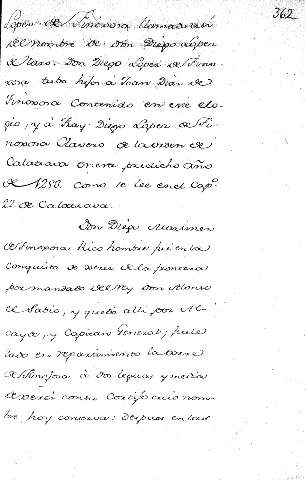 362
Lopez de Finoxosa llamado assi
del nombre de don Diego Lopez
de Haro. Don Diego Lopez de Fino
xosa tubo hijos à Juan Diaz de
Finoxosa Contenido en este elo
gio, y à fray Diego Lopez de Fi
noxosa Clavero de la orden de
Calatrava en este predicho año
de 1250. como se lee en el Capº.
22. de Calatrava.
Don Diego Maximen
de Finoxosa Rico hombre fué en la
Conquista de Xerez de la frontera
por mandado del Rey don Alonso
el Sabio, y quedò alli por Al
cayde, y Capitan General; fuele
dado en repartimiento la torre
de Finoxosa à dos leguas y media
de Xerez con su Cortijo cuio nom
bre hoy conserva: Despues en las